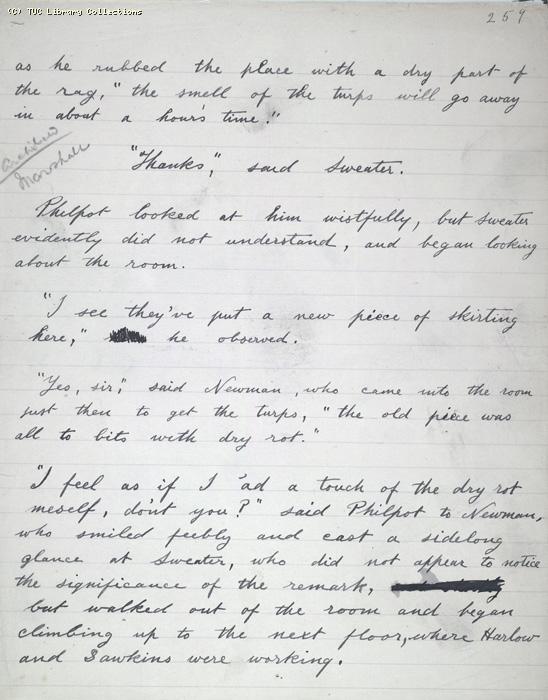 (C) TUC Library Collections
259
as he rubbed the place with a dry part of
the rag, "the smell of the turps will go away
in about a hour's time."
Marshall
"Thanks", said Sweater.
Philpot looked at him wistfully, but Sweater
evidently did not understand, and began looking
about the room.
"I see they've put a new piece of skirting
here," he observed.
"Yes, sir," said Newman, who came into the room
just then to get the turps, "the old piece was
all to bits with dry rot."
"I feel as if I 'ad a touch of the dry rot
meself, don't you?" said Philpot to Newman,
who smiled feebly and cast a sidelong
glance at Sweater, who did not appear to notice
the significance of the remark,
but walked out of the room and began
climbing up to the next floor, where Harlow
and Sawkins were working.